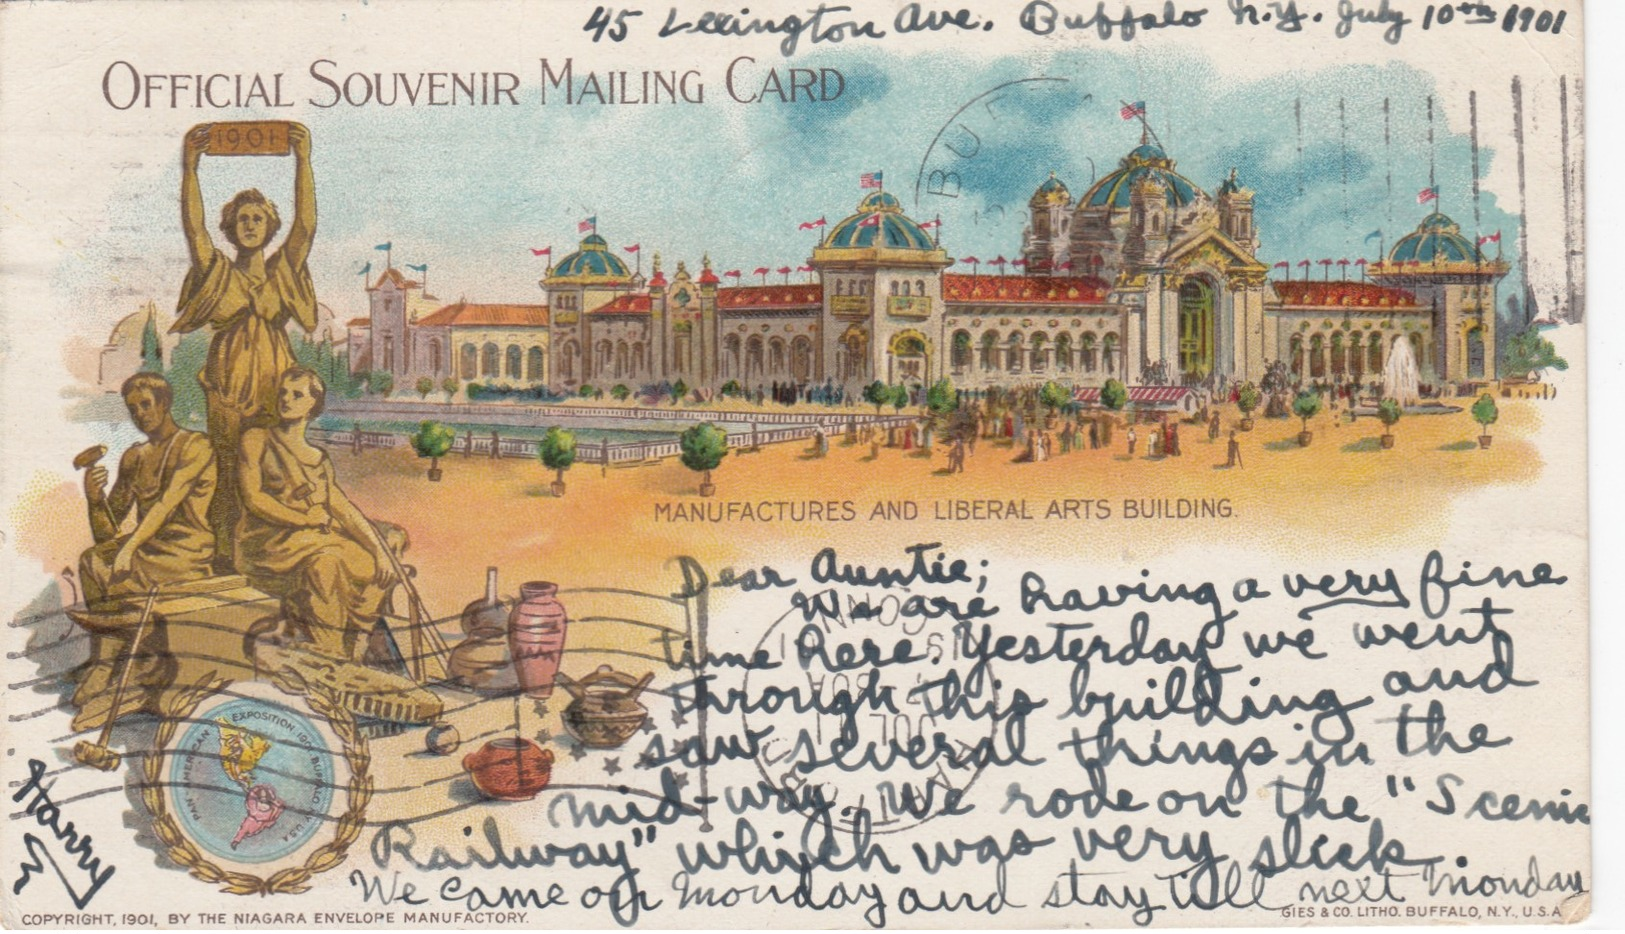 45 Lexington Ave. Buffalo N.Y. July 10th 1901
OFFICIAL SOUVENIR MAILING CARD
1901
BUF
MANUFACTURES AND LIBERAL ARTS BUILDING.
Dear Auntie;
We are having a very fine
time here. Yesterday we went
through this building and
saw several things in the
mid-way. We rode on the "Scenic
Railway" which was very slick
We came on Monday and stay till next Monday
Harry
CONN
JUL
PAN AMERICAN EXPOSITION 1901 BUFFALO N.Y. U.S.A.
COPYRIGHT, 1901, BY THE NIAGARA ENVELOPE MANUFACTORY.
GIES & CO. LITHO. BUFFALO, N.Y., U.S.A